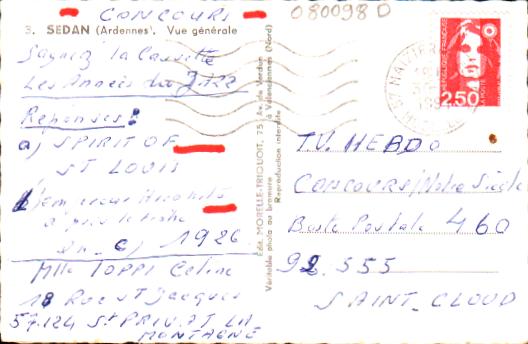 CONCOURS
080098 D
3. SEDAN (Ardennes). Vue générale
Gagnez la Cassette
Les Années du Jazz
Réponses:
a) SPIRIT OF
ST LOUIS
d'après le texte
c) 1926
Mlle TOPPI Céline
18 Rue St Jacques
57.124 St PRIVAT LA
MONTAGNE
Edit. MORELLE-TRIQUOIT, 75, Av. de Verdun
à Valenciennes (Nord)
Véritable photo au bromure
Reproduction interdite
REPUBLIQUE FRANÇAISE
LA POSTE
2,50
T.V. HEBDO
CONCOURS/Notre Siècle
Boite Postale 460
92.555
SAINT-CLOUD